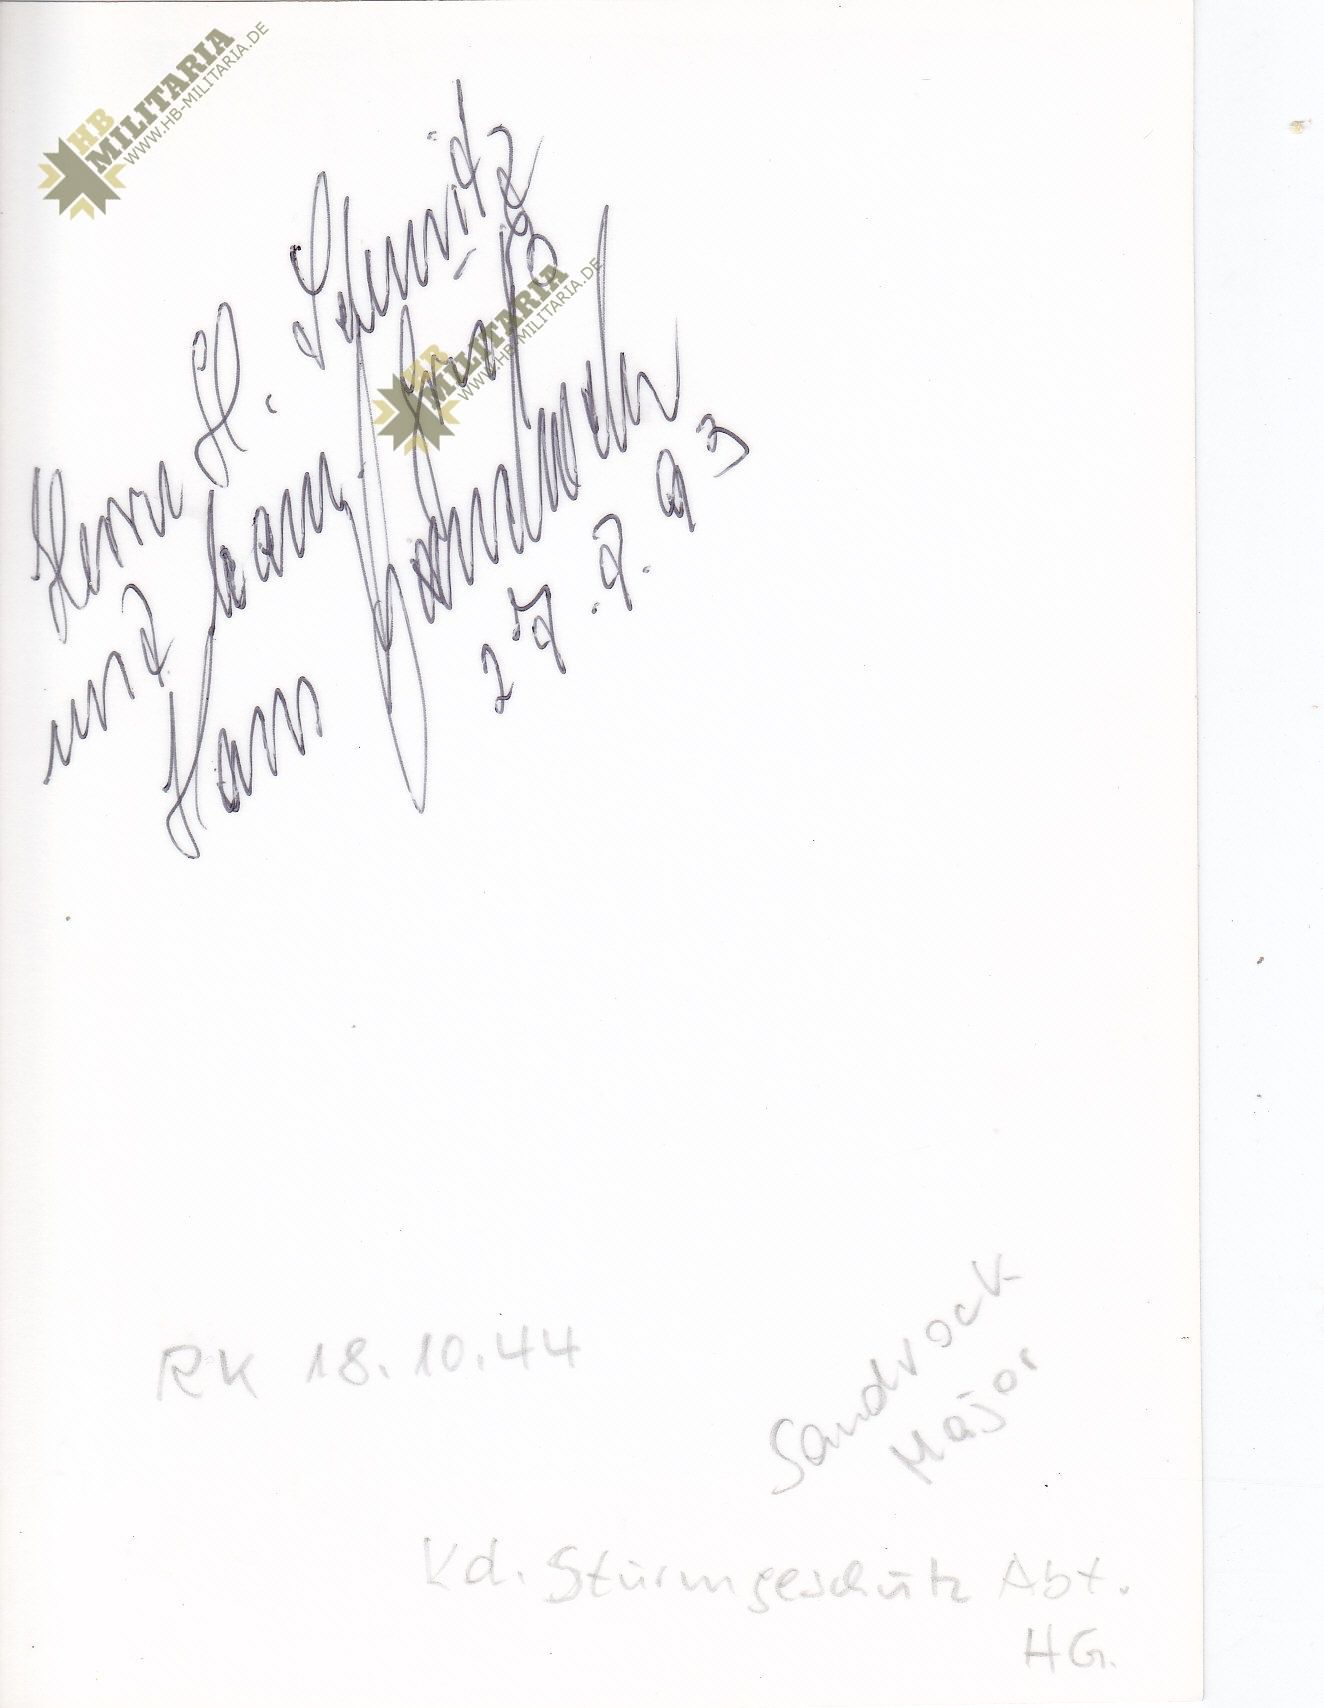 HB
MILITARIA
WWW.HB-MILITARIA.DE
Herrn H. Schmitz
und kam. Gruß
Hans Sandrock
27.7.93
HB
MILITARIA
WWW.HB-MILITARIA.DE
RK 18.10.44
Sandrock
Major
Kd. Sturmgeschütz Abt.
HG.